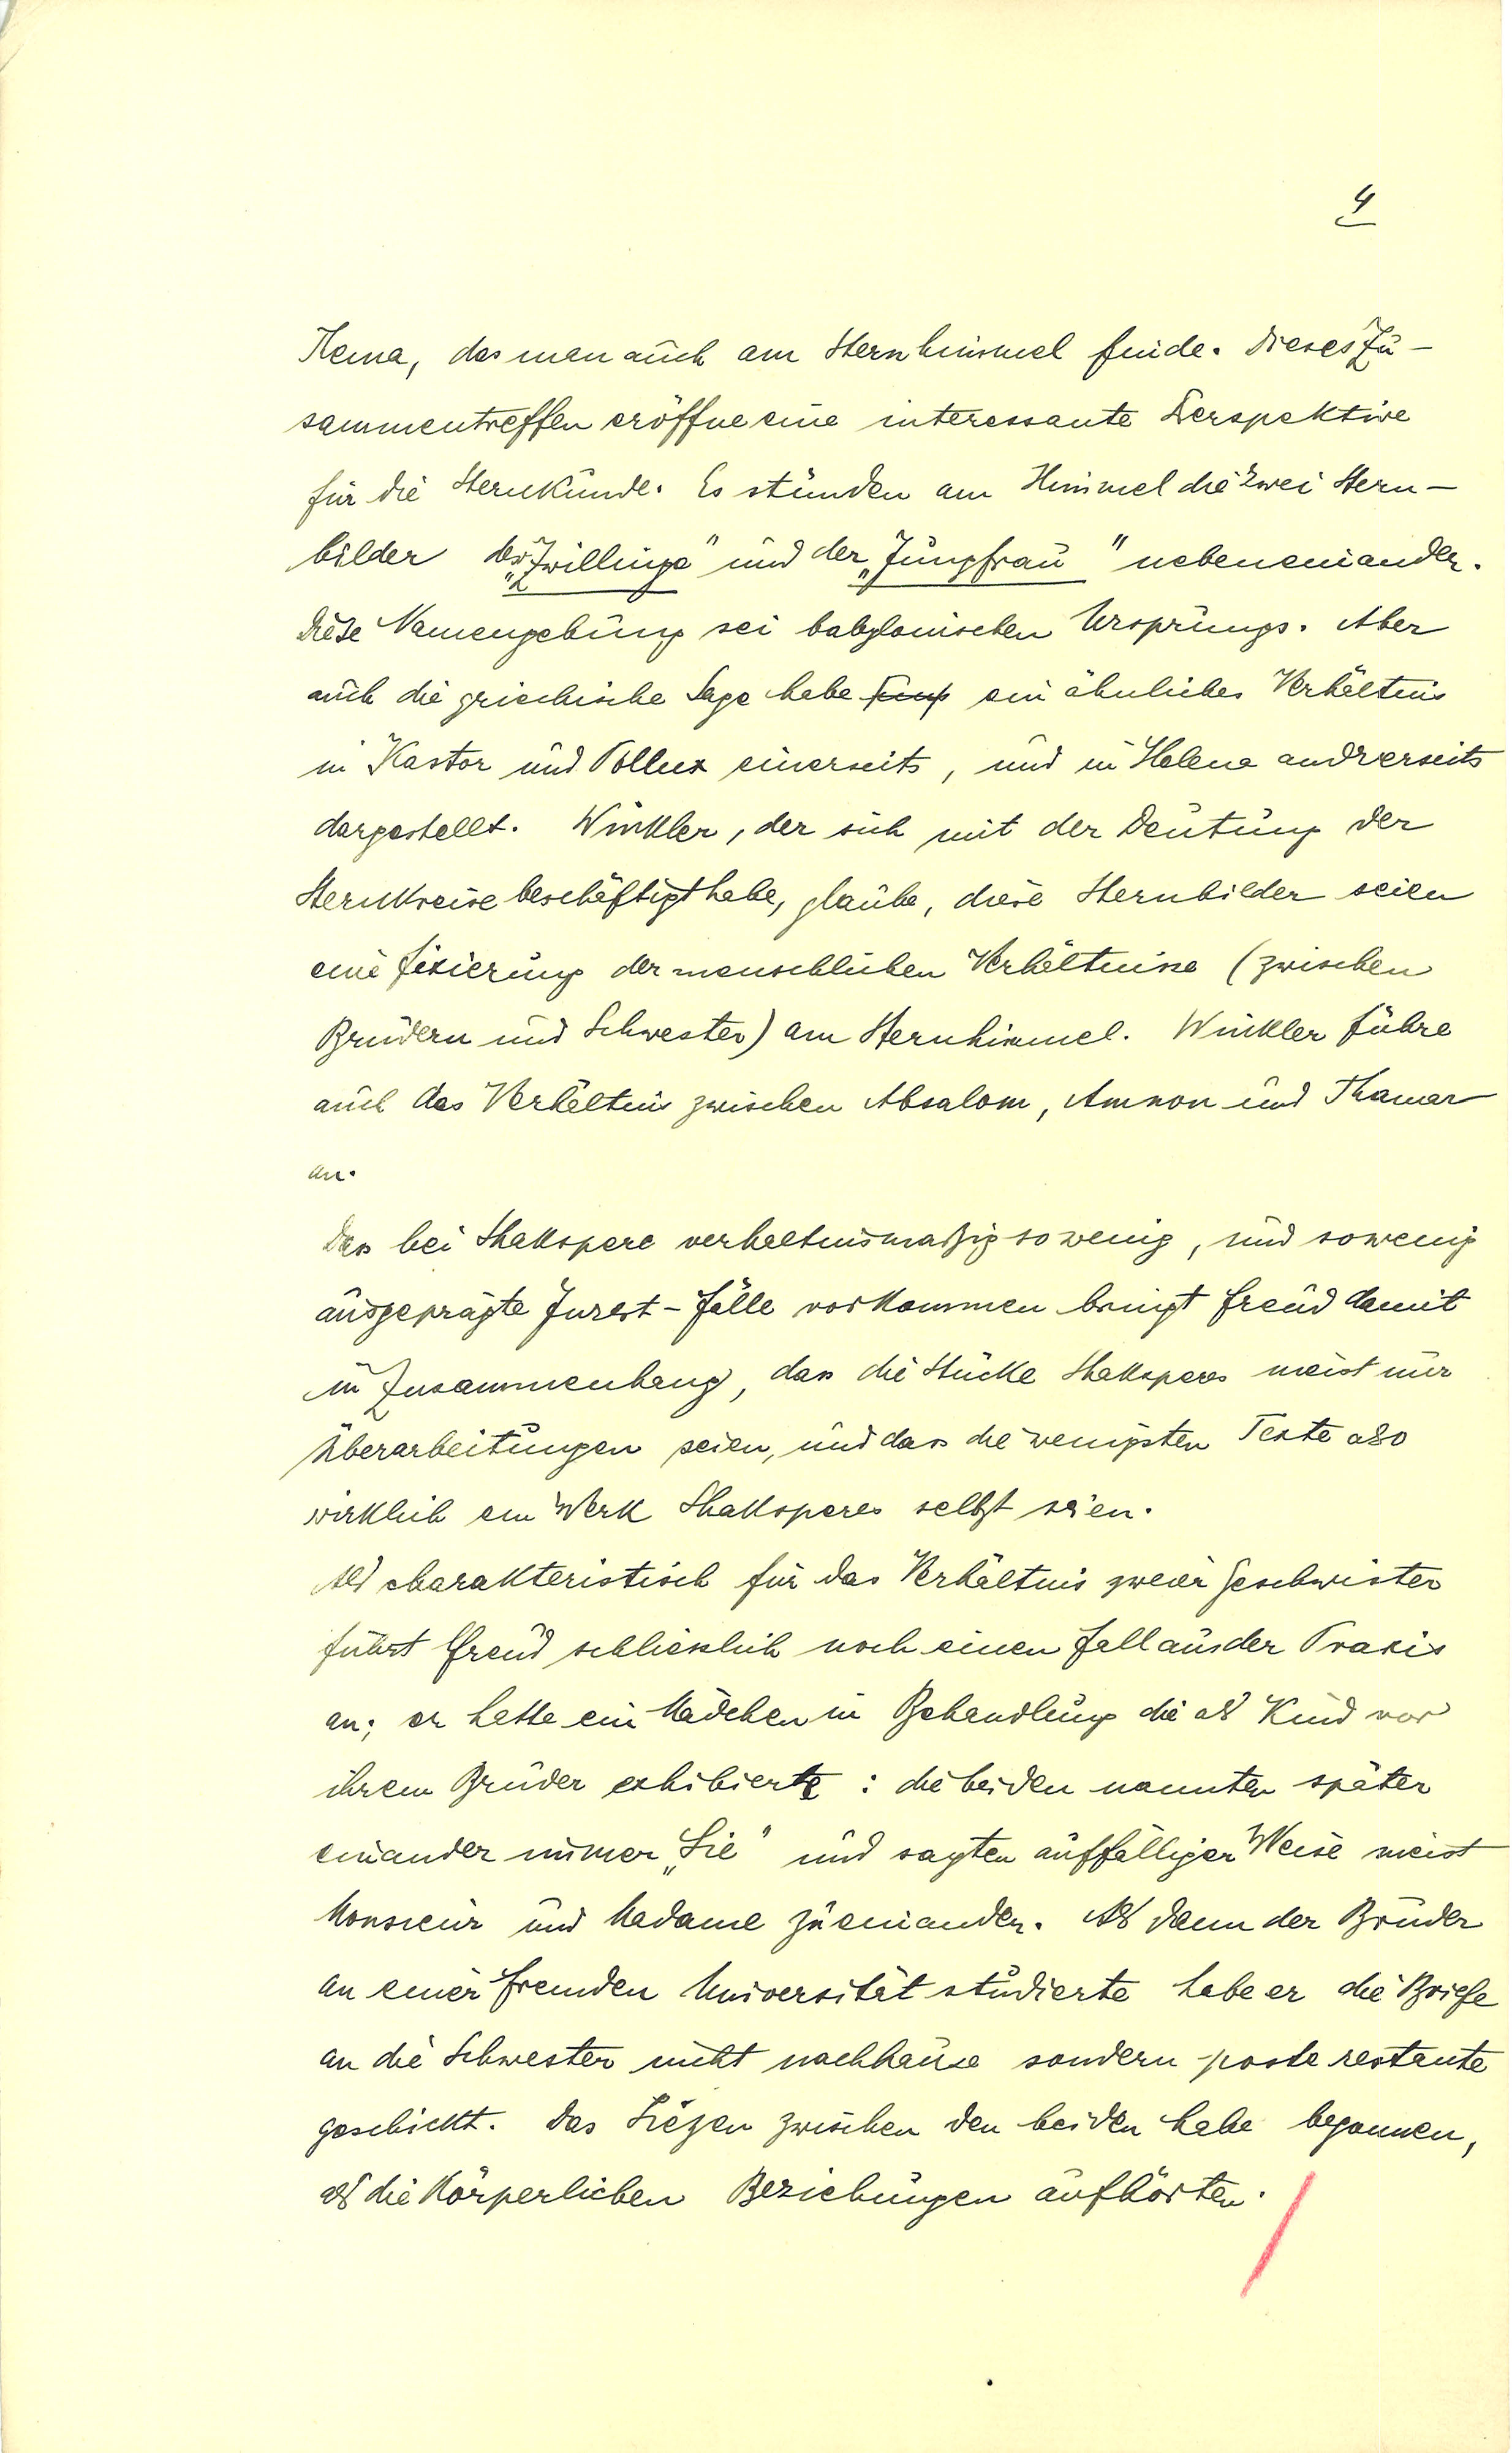 4
Thema, das man auch am Sternhimmel finde. Dieses Zu-
sammentreffen eröffne eine interessante Perspektive
für die Sternkunde. Es stünden am Himmel die zwei Stern-
bilder der „Zwillinge" und der „Jungfrau" nebeneinander.
Diese Namengebung sei babylonischen Ursprungs. Aber
auch die griechische Sage habe ein ähnliches Verhältnis
in Kastor und Pollux einerseits, und in Helena andrerseits
dargestellt. Winkler, der sich mit der Deutung der
Sternkreise beschäftigt habe, glaube, diese Sternbilder seien
eine Fixierung der menschlichen Verhältnisse (zwischen
Brüdern und Schwester) am Sternhimmel. Winkler führe
auch das Verhältnis zwischen Absalom, Amnon und Thamar
an.
Dass bei Shakspere verhältnismäßig so wenig, und so wenig
ausgeprägte Inzest-Fälle vorkommen bringt Freud damit
in Zusammenhang, dass die Stücke Shaksperes meist nur
Überarbeitungen seien, und dass die wenigsten Texte also
wirklich ein Werk Shaksperes selbst seien.
Als charakteristisch für das Verhältnis zweier Geschwister
führt Freud schliesslich noch einen Fall aus der Praxis
an; er hatte ein Mädchen in Behandlung die als Kind vor
ihrem Bruder exhibierte: die beiden nannten später
einander immer „Sie" und sagten auffälliger Weise meist
Monsieur und Madame zueinander. Als dann der Bruder
an einer fremden Universität studierte habe er die Briefe
an die Schwester nicht nachhause sondern poste restante
geschickt. Das Siezen zwischen den beiden habe begonnen,
als die körperlichen Beziehungen aufhörten.